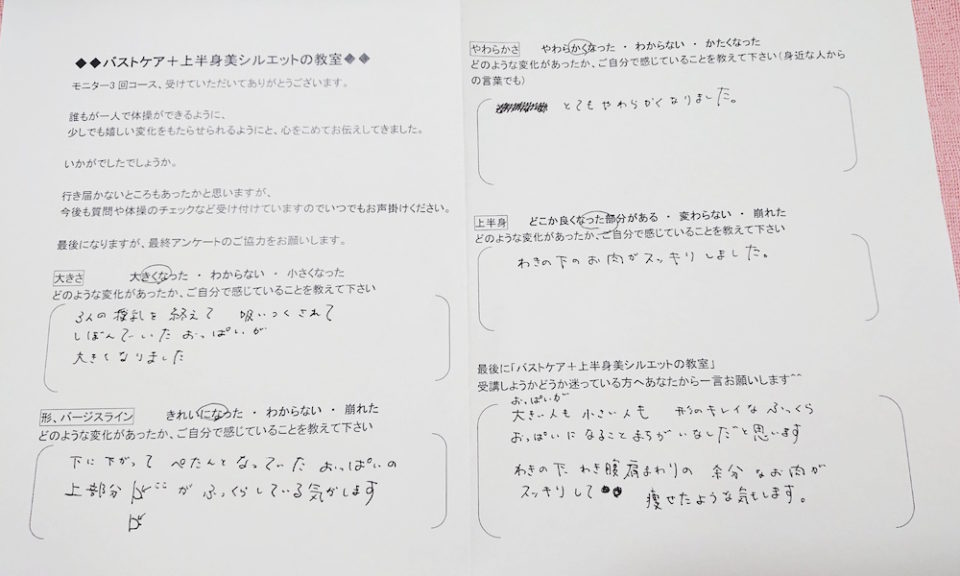 ◆◆バストケア＋上半身美シルエットの教室◆◆
モニター3回コース、受けていただいてありがとうございます。
誰もが一人で体操ができるように、
少しでも嬉しい変化をもたらせられるようにと、心をこめてお伝えしてきました。
いかがでしたでしょうか。
行き届かないところもあったかと思いますが、
今後も質問や体操のチェックなど受け付けていますのでいつでもお声掛けください。
最後になりますが、最終アンケートのご協力をお願いします。
大きさ 大きくなった ・ わからない ・ 小さくなった
どのような変化があったか、ご自分で感じていることを教えて下さい
3人の授乳を終えて 吸いつくされて
しぼんでいた おっぱいが
大きくなりました
形、バージスライン きれいになった ・ わからない ・ 崩れた
どのような変化があったか、ご自分で感じていることを教えて下さい
下に下がって ぺたんとなっていた おっぱいの
上部分 ここ が ふっくらしている気がします
やわらかさ やわらかくなった ・ わからない ・ かたくなった
どのような変化があったか、ご自分で感じていることを教えて下さい（身近な人から
の言葉でも）
とてもやわらかくなりました。
上半身 どこか良くなった部分がある ・ 変わらない ・ 崩れた
どのような変化があったか、ご自分で感じていることを教えて下さい
わきの下のお肉がスッキリしました。
最後に「バストケア＋上半身美シルエットの教室」
受講しようかどうか迷っている方へあなたから一言お願いします^^
おっぱいが
大きい人も 小さい人も 形のキレイな ふっくら
おっぱいになること まちがいなしだと思います
わきの下 わき腹 肩まわりの 余分なお肉が
スッキリして 痩せたような気もします。